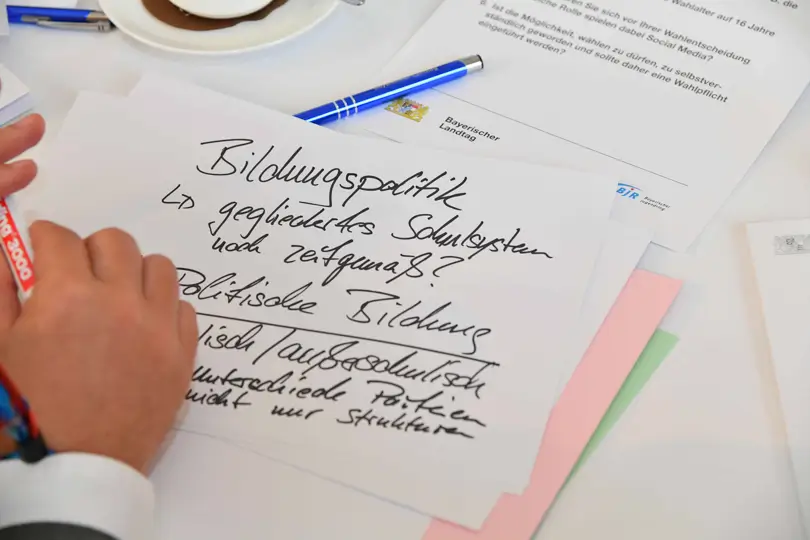 Wahlalter auf 16 Jahre
en Sie sich vor Ihrer Wahlentscheidung
che Rolle spielen dabei Social Media?
8. Ist die Möglichkeit, wählen zu dürfen, zu selbstver-
ständlich geworden und sollte daher eine Wahlpflicht
eingeführt werden?
Bayerischer
Landtag
BJR
Bildungspolitik
↳ gegliedertes Schulsystem
noch zeitgemäß?
Politische Bildung
lisch/außerschulisch
Unterschiede Parteien
nicht nur Strukturen
ing 3000